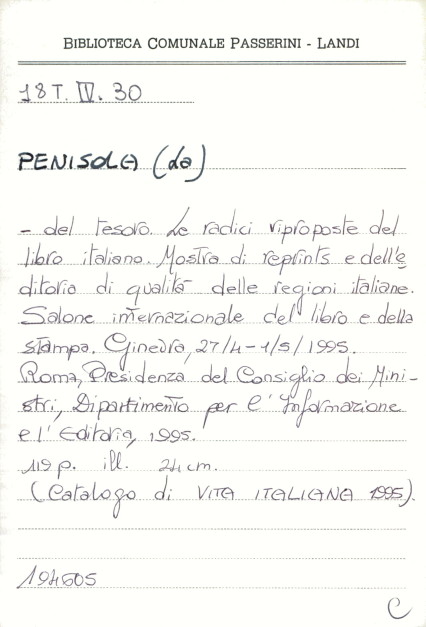 BIBLIOTECA COMUNALE PASSERINI - LANDI
18 T. IV. 30
PENISOLA (La)
- del tesoro. Le radici riproposte del
libro italiano. Mostra di reprints e dell'e
ditoria di qualità delle regioni italiane.
Salone internazionale del libro e della
stampa. Ginevra, 27/4-1/5/1995.
Roma, Presidenza del Consiglio dei Mini-
stri, Dipartimento per l'Informazione
e l'Editoria, 1995.
119 p. ill. 24 cm.
(Catalogo di VITA ITALIANA 1995).
194605
C